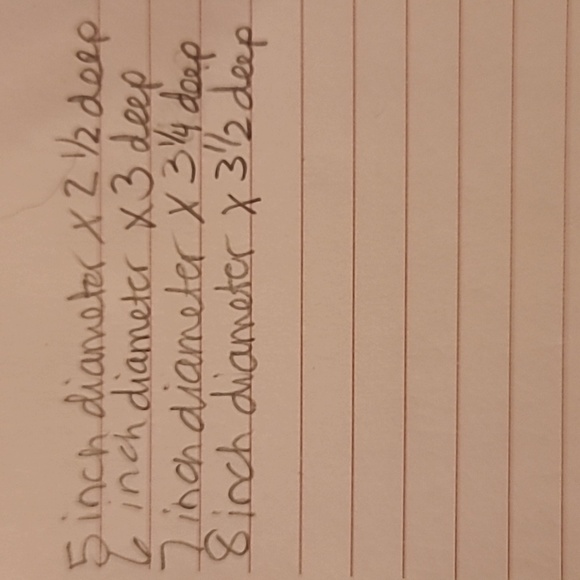 5 inch diameter x 2 1/2 deep
6 inch diameter x 3 deep
7 inch diameter x 3 1/4 deep
8 inch diameter x 3 1/2 deep